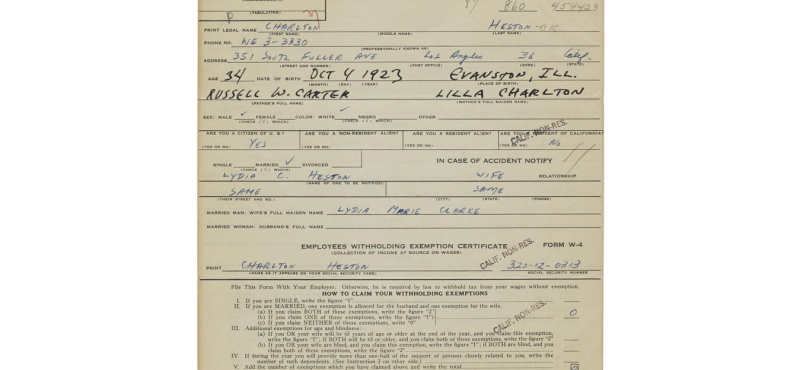 (TABULATING)
P
97 860 454423
PRINT LEGAL NAME CHARLTON HESTON-
(FIRST NAME) (MIDDLE NAME) (LAST NAME)
PHONE NO. WE 3-3330
(PROFESSIONALLY KNOWN AS)
ADDRESS 351 SOUTH FULLER AVE Los Angeles 36 Calif.
(STREET AND NUMBER) (POST OFFICE) (ZONE) (STATE)
AGE 34 DATE OF BIRTH OCT 4 1923 EVANSTON, ILL.
(MONTH) (DAY) (YEAR) (PLACE OF BIRTH)
RUSSELL W. CARTER LILLA CHARLTON
(FATHER'S FULL NAME) (MOTHER'S FULL MAIDEN NAME)
SEX: MALE ✓ FEMALE COLOR: WHITE ✓ NEGRO OTHER
(CHECK (✓) WHICH) (CHECK (✓) WHICH)
ARE YOU A CITIZEN OF U. S.? ARE YOU A NON-RESIDENT ALIEN? ARE YOU A RESIDENT ALIEN? ARE YOU A RESIDENT OF CALIFORNIA?
CALIF. NON-RES.
(YES OR NO) YES (YES OR NO) (YES OR NO) (YES OR NO) No
SINGLE MARRIED ✓ DIVORCED
(CHECK (✓) WHICH)
IN CASE OF ACCIDENT NOTIFY
LYDIA C. HESTON WIFE RELATIONSHIP
(NAME OF ONE TO BE NOTIFIED)
SAME SAME
(THEIR STREET AND NO.) (CITY) (STATE) (PHONE)
MARRIED MAN: WIFE'S FULL MAIDEN NAME LYDIA MARIE CLARKE
MARRIED WOMAN: HUSBAND'S FULL NAME
EMPLOYEES WITHHOLDING EXEMPTION CERTIFICATE FORM W-4
(COLLECTION OF INCOME AT SOURCE ON WAGES)
CALIF. NON-RES.
PRINT CHARLTON HESTON
(NAME AS IT APPEARS ON YOUR SOCIAL SECURITY CARD) SOCIAL SECURITY NUMBER
File This Form With Your Employer. Otherwise, he is required by law to withhold tax from your wages without exemption.
HOW TO CLAIM YOUR WITHHOLDING EXEMPTIONS
I. If you are SINGLE, write the figure "1"
II. If you are MARRIED, one exemption is allowed for the husband and one exemption for the wife.
(a) If you claim BOTH of these exemptions, write the figure "2"
(b) If you claim ONE of these exemptions, write the figure "1" 0
(c) If you claim NEITHER of these exemptions, write "0"
CALIF. NON-RES.
III. Additional exemptions for age and blindness:
(a) If you OR your wife will be 65 years of age or older at the end of the year, and you claim this exemption,
write the figure "1"; if BOTH will be 65 or older, and you claim both of these exemptions, write the figure "2"
(b) If you OR your wife are blind, and you claim this exemption, write the figure "1"; if BOTH are blind, and you
claim both of these exemptions, write the figure "2"
IV. If during the year you will provide more than one-half of the support of persons closely related to you, write the
number of such dependents. (See Instruction 3 on other side.)
V. Add the number of exemptions which you have claimed above and write the total